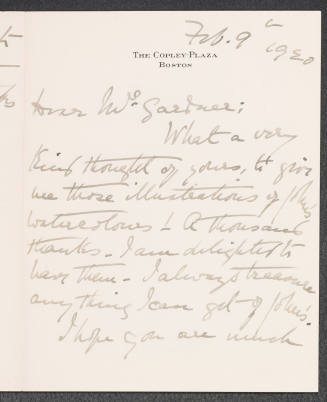 Feb. 9th 1920
THE COPLEY-PLAZA
BOSTON
Dear Mrs Gardner;
What a very
kind thought of yours, to give
me those illustrations of John's
watercolours! A thousand
thanks. I am delighted to
have them. I always treasure
anything I can get of John's.
I hope you are much